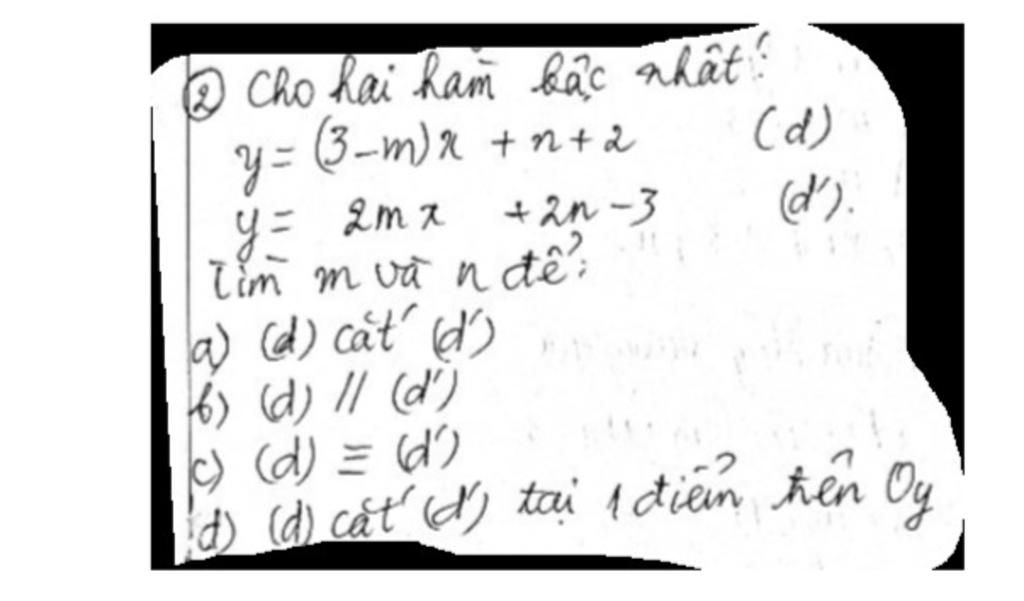 ② Cho hai hàm bậc nhất:
y = (3-m)x + n + 2 (d)
y = 2mx + 2n - 3 (d').
Tìm m và n để:
a) (d) cắt (d')
b) (d) // (d')
c) (d) ≡ (d')
d) (d) cắt (d') tại 1 điểm trên Oy